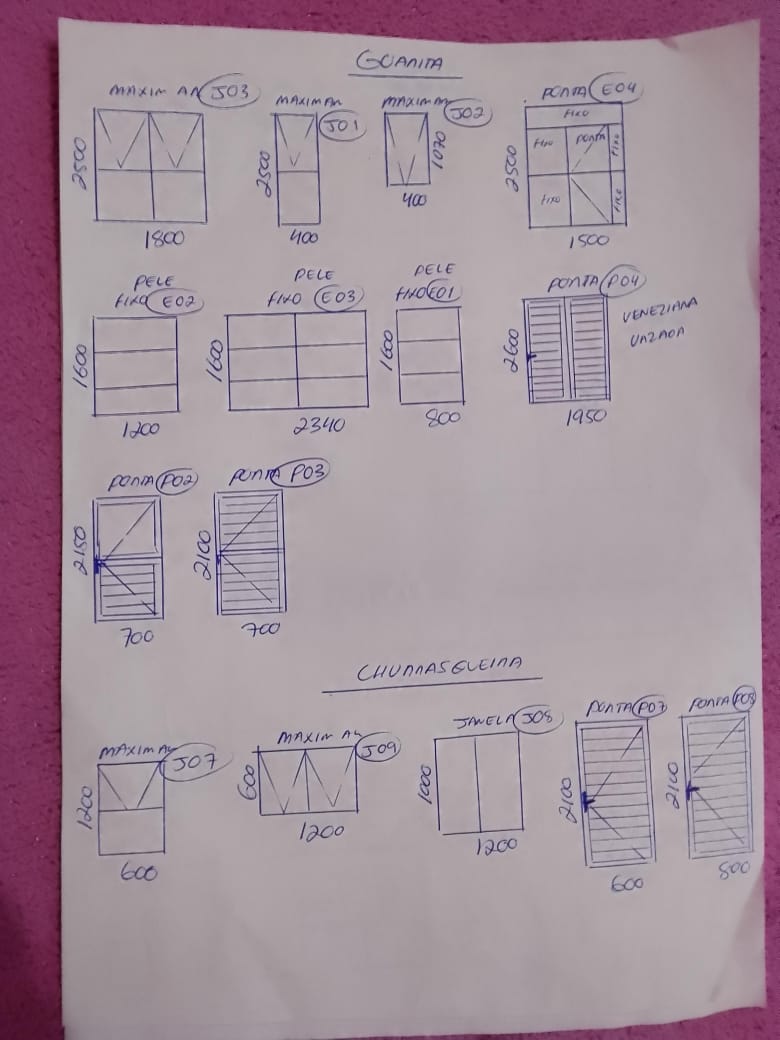 GUARITA
MAXIM AR J03
MAXIM AR J01
MAXIM AR J02
PORTA E04
2500
1800
2500
400
1070
400
FIXO
FIXO PORTA FIXO
FIXO FIXO
2500
1500
PELE
FIXO E02
PELE
FIXO E03
PELE
FIXO E01
PORTA P04
VENEZIANA
VAZADA
1600
1200
1600
2340
1600
800
2600
1950
PORTA P02
PORTA P03
2150
700
2100
700
CHURRASQUEIRA
MAXIM AR J07
MAXIM AR J09
JANELA J08
PORTA P07
PORTA P08
1200
600
600
1200
1000
1200
2100
600
2100
800